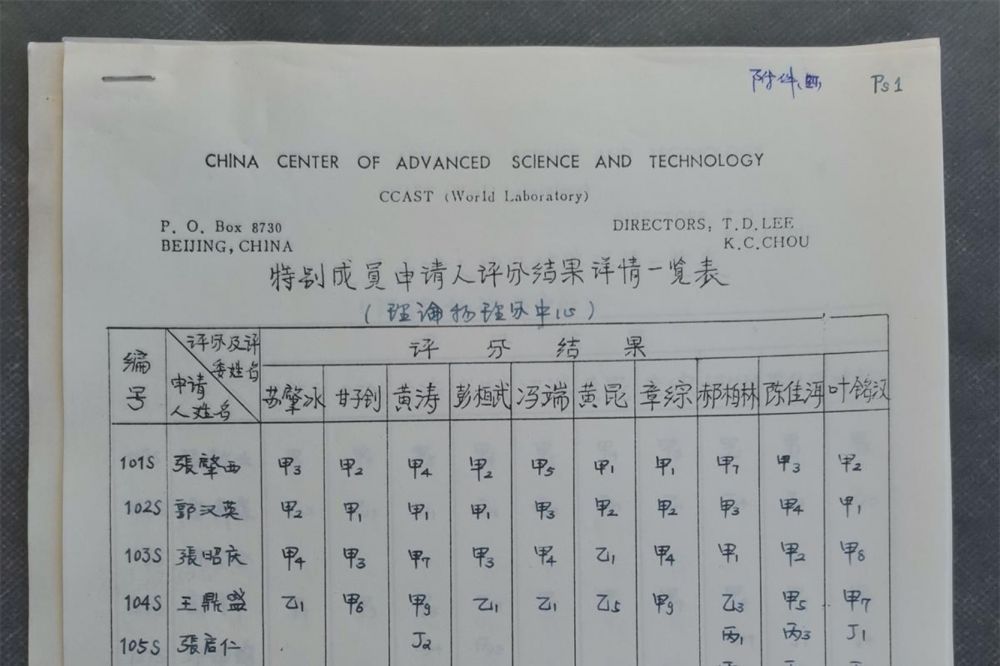 附件
Ps1
CHINA CENTER OF ADVANCED SCIENCE AND TECHNOLOGY
CCAST (World Laboratory)
P. O. Box 8730 DIRECTORS: T.D.LEE
BEIJING, CHINA K.C.CHOU
特别成员申请人评分结果详情一览表
(理论物理分中心)
编号 评分及评委姓名 申请人姓名 评分结果
苏肇冰 甘子钊 黄涛 彭桓武 冯端 黄昆 章综 郝柏林 陈佳洱 叶铭汉
101S 張肇西 甲3 甲2 甲4 甲2 甲5 甲1 甲1 甲7 甲3 甲2
102S 郭汉英 甲2 甲1 甲1 甲1 甲3 甲2 甲2 甲3 甲4 甲1
103S 張昭庆 甲4 甲3 甲7 甲3 甲4 乙1 甲4 甲1 甲2 甲8
104S 王鼎盛 乙1 甲6 甲9 乙1 乙1 乙5 甲9 乙3 甲5 甲7
105S 張启仁 J2 丙1 丙3 J1